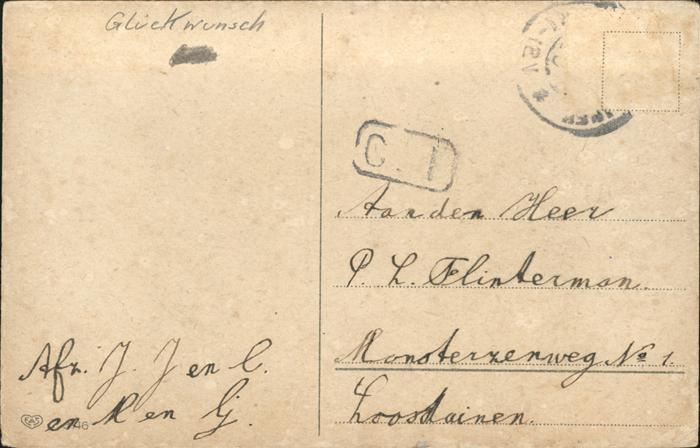 Glückwunsch
C. 1
Aan den Heer
P. L. Flinterman.
Monsterzenweg No 1.
Loosduinen.
Afz. J. J en C.
en M en G.
46